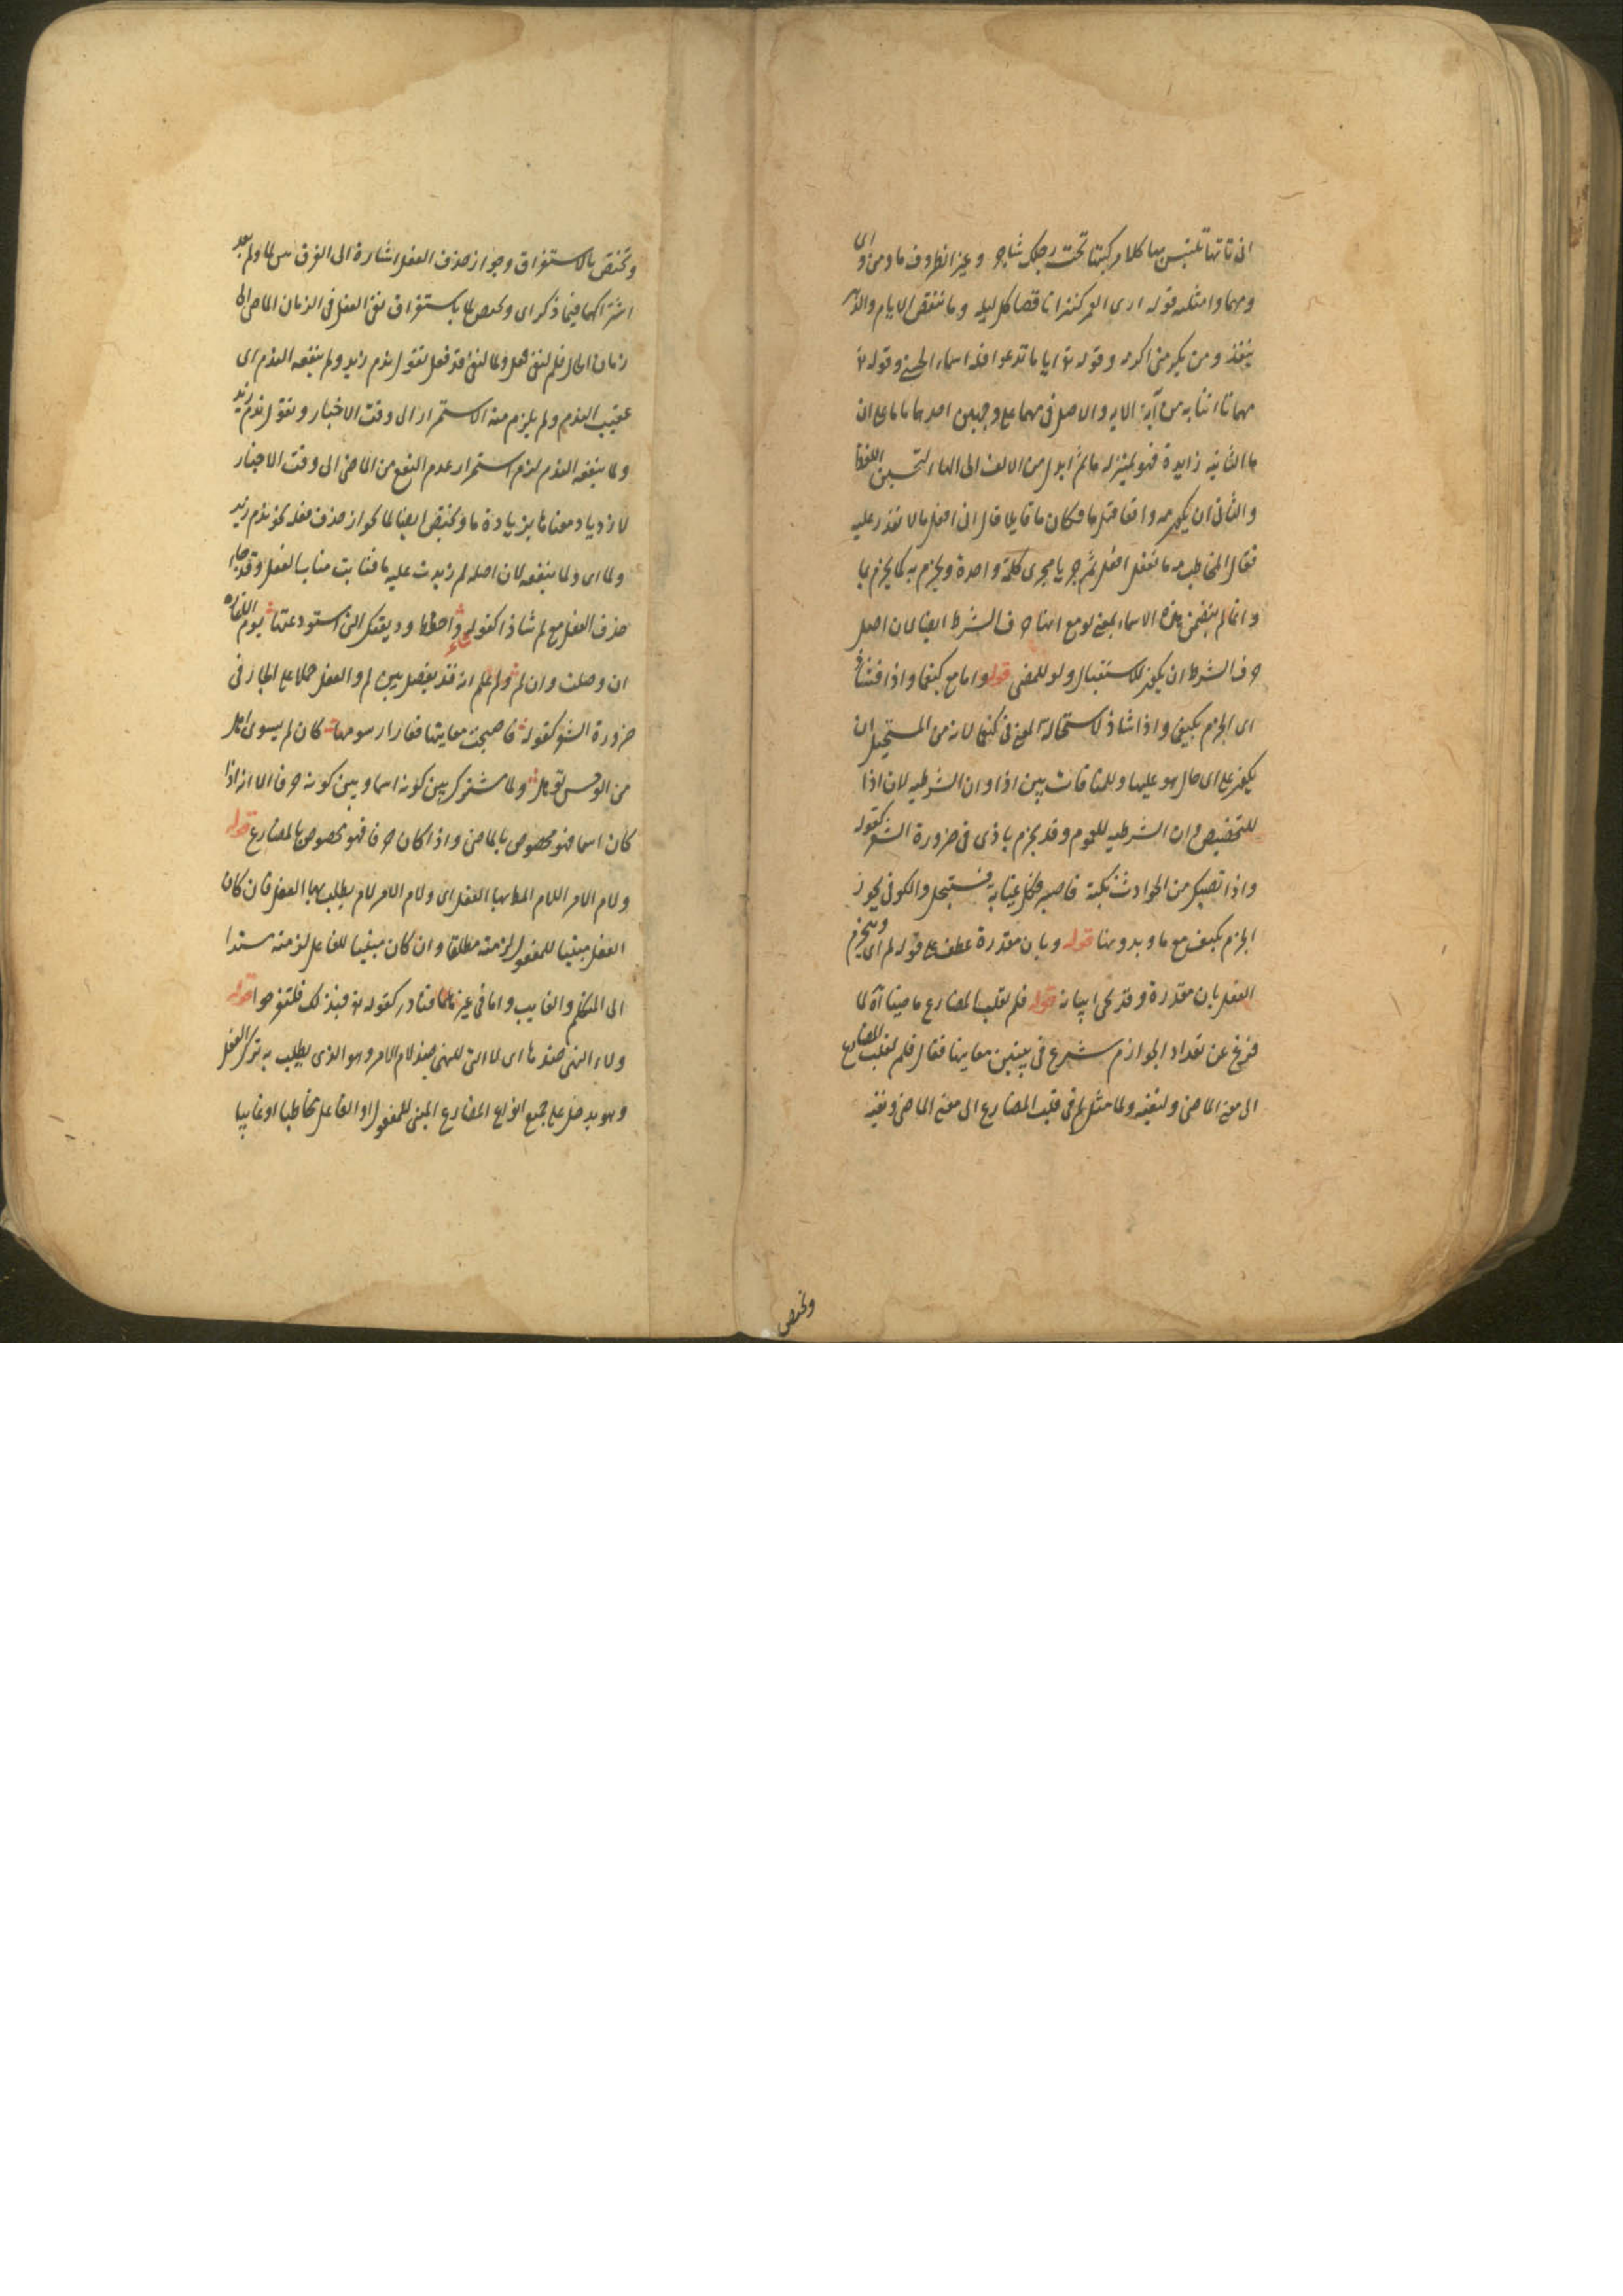 انى تأتها تلتبس بها كلا مركبيها تحت رجلك شاجر وغير الظروف ما ومن واى
ومهما وامثلته قوله ارى العمر كنزا ناقصا كل ليلة وما تنقص الايام والدهر
ينفد ومن يكرمنى اكرمه وقوله تع ايا ما تدعوا فله اسماء الحسنى وقوله تع
مهما تاتنا به من آية الاية والاصل فى مهما على وجهين احدهما ما ما على ان
ما الثانية زايدة فهو بمنزلة ثم ابدل من الالف الى الهاء لتحسين اللفظ
والثانى ان يكون مه واقعا قبل ما فكان ما قايلا قال انى افعل ما لا تقدر عليه
فقال المخاطب مه ما تفعل افعل ثم جريا مجرى كلمة واحدة ويجزم به كما يجزم بما
وانما لم يتضمن هذه الاسماء بمعنى لو مع انها حرف الشرط ايضا لان اصل
حرف الشرط ان يكون للاستقبال ولو للمضى قوله واما مع كيفما واذا فشاذ
اى الجزم بكيفما واذا شاذ لاستحالة المعنى فى كيفما لانه من المستحيل ان
يكون على اى حال هو عليها وللمنافات بين اذا وان الشرطية لان اذا
للتخصيص وان الشرطية للعموم وقد يجزم باذى فى ضرورة الشعر كقوله
واذا تصبك من الحوادث نكبة فاصبر فكل غيابة فستنجل والكوفى يجوز
الجزم بكيف مع ما وبدونها قوله وبان مقدرة عطف على قوله لم اى وينجزم
الفعل بان مقدرة وقد يجى بيانه قوله فلم لقلب المضارع ماضيا آه لما
فرغ عن تعداد الجوازم شرع فى تبيين معانيها فقال فلم لقلب المضارع
الى معنى الماضى ولنفيه ولما مثل لم فى قلب المضارع الى معنى الماضى ونفيه
وتختص
وتختص بالاستغراق وجواز حذف الفعل اشارة الى الفرق بين لما ولم بعد
اشتراكهما فيما ذكر اى وتختص لما باستغراق نفى الفعل فى الزمان الماضى الى
زمان الحال فلم لنفى فعل ولما لنفى قد فعل تقول ندم زيد ولم ينفعه الندم اى
عقيب الندم ولم يلزم منه الاستمرار الى وقت الاخبار وتقول ندم زيد
ولما ينفعه الندم لزم استمرار عدم النفع من الماضى الى وقت الاخبار
لازدياد معناها بزيادة ما وتختص ايضا لما بجواز حذف فعله نحو ندم زيد
ولما اى ولما ينفعه لان اصله لم زيدت عليه ما فنابت مناب الفعل وقد جاء
حذف الفعل مع لم شاذا كقوله شعر واحفظ وديعتك التى استودعتها يوم
ان وصلت وان لم ولم اعلم انه قد يفصل بين لم والفعل حملا على الجار فى
ضرورة الشعر كقوله فاصبحت معانيها قفارا رسومها كان لم سوى اهل
من الوحش تؤهل ولما مشترك بين كونه اسما وبين كونه حرفا الا انه اذا
كان اسما فهو مخصوص بالماضى واذا كان حرفا فهو مخصوص بالمضارع قوله
ولام الامر اللام المط بها الفعل اى ولام الامر لام يطلب بها الفعل فان كان
الفعل مبنيا للمفعول لزمته مطلقا وان كان مبنيا للفاعل لزمته مسندا
الى المتكلم والغايب واما فى غيرهما فنادر كقوله تع فبذلك فلتفرحوا قوله
ولاء النهى ضدها اى لا التى للنهى ضد لام الامر وهو الذى يطلب به ترك الفعل
وهو يدخل على جميع انواع المضارع المبنى للمفعول او الفاعل مخاطبا او غايبا